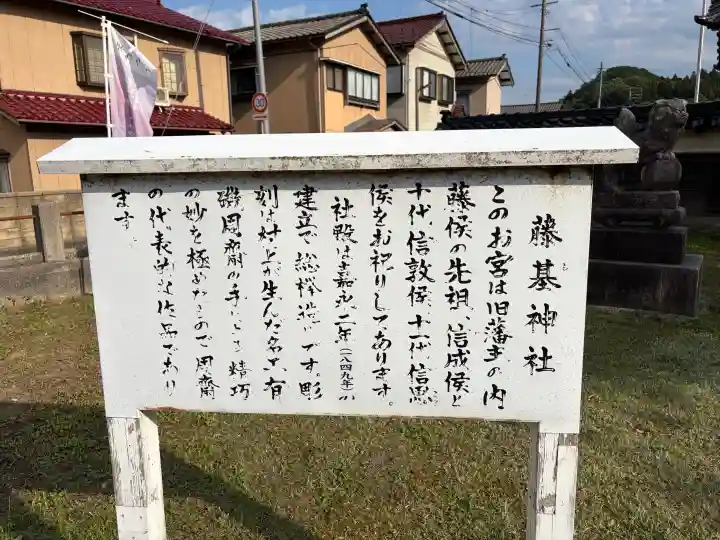 藤基神社
このお宮は旧藩主の内
藤侯の先祖、信成侯と
十代 信敦侯、十一代 信思
侯をお祀りしてあります。
社殿は嘉永二年(一八四九年)の
建立で総欅造りです。彫
刻は村上が生んだ名工、有
磯周斎の手による 精巧
の妙を極めたもので 周斎
の代表的な作品であり
ます。